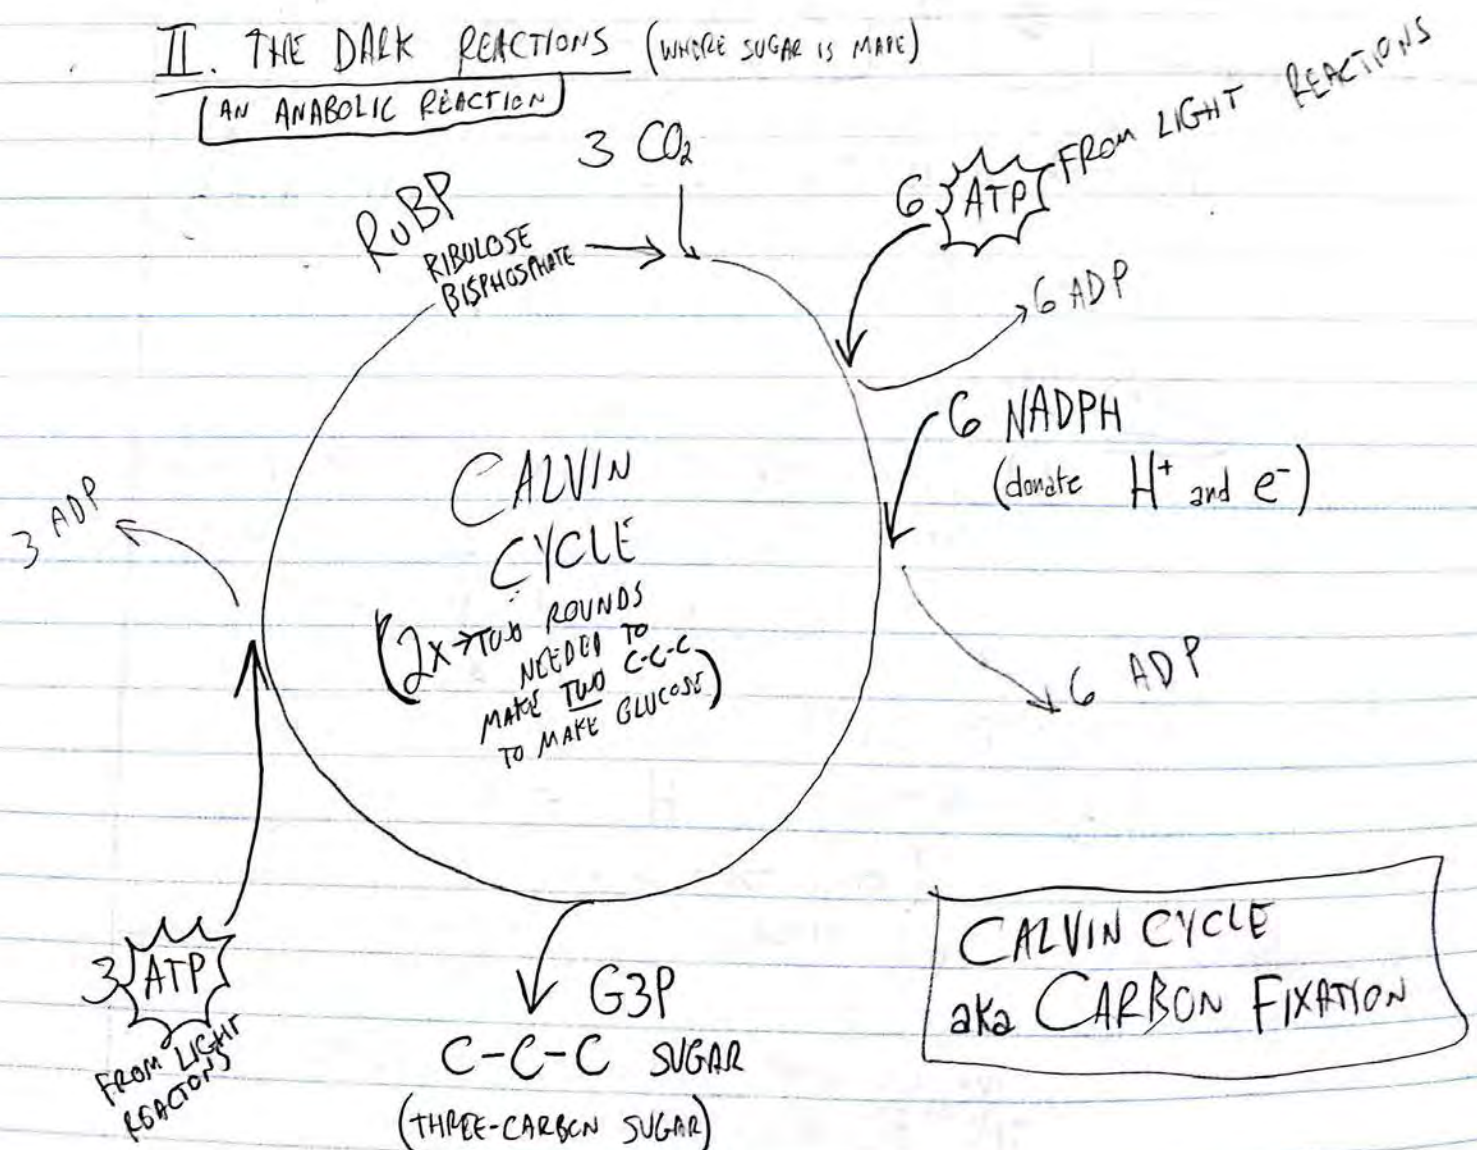 II. THE DARK REACTIONS (WHERE SUGAR IS MADE)
AN ANABOLIC REACTION
3 CO₂
RuBP
RIBULOSE
BISPHOSPHATE
6 ATP FROM LIGHT REACTIONS
6 ADP
6 NADPH
(donate H⁺ and e⁻)
6 ADP
CALVIN
CYCLE
(2x→TWO ROUNDS
NEEDED TO
MAKE TWO C-C-C
TO MAKE GLUCOSE)
3 ADP
3 ATP
FROM LIGHT
REACTONS
G3P
C-C-C SUGAR
(THREE-CARBON SUGAR)
CALVIN CYCLE
aka CARBON FIXATION